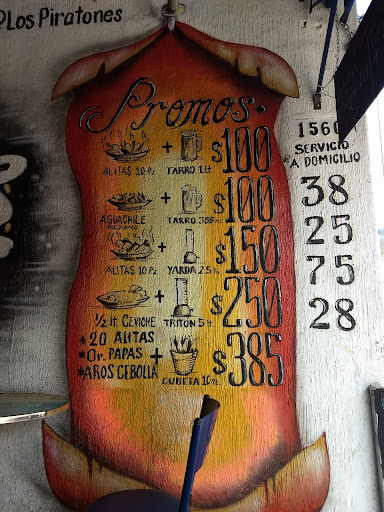 @Los Piratones
Promos.
+ $100
ALITAS 10 Pz TARRO 1 lt
+ $100
AGUACHILE TARRO 355 ml
+ $150
ALITAS 10 Pz YARDA 2.5 lt
+ $250
1/2 lt CEVICHE TRITON 5 lt
*20 ALITAS
*Or. PAPAS + $385
*AROS CEBOLLA
CUBETA 10 Pz
1560
SERVICIO
A DOMICILIO
38
25
75
28